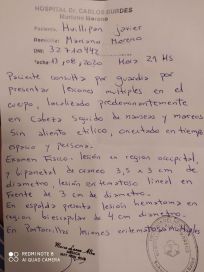 HOSPITAL Dr. CARLOS DURDES
Mariano Moreno
Paciente: Huillipan Javier
Domicilio: Mariano Moreno
DNI: 32710442
Fecha: 17/08/2020 Hora 21 HS
Paciente consulta por guardia por
presentar lesiones multiples en el
cuerpo, localizado predominantemente
en cabeza seguido de nauseas y mareos
Sin aliento etilico, orientado en tiempo
espacio y persona.
Examen Fisico: lesión en region occipital,
y biparietal de craneo 3,5 x 3 cm de
diametro, lesión eritematoso lineal en
frente de 2 cm de diametro.
En espalda presenta lesión hematoma en
region biescapular de 4 cm diametro.
En Pantorrillas lesiones eritematosa multiples
REDMINOTE 8
AI QUAD CAMERA